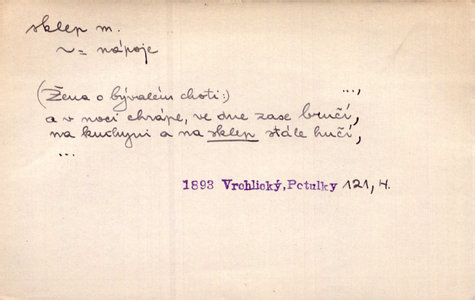 sklep m.
~ = nápoje
(Žena o bývalém choti:) ...,
a v noci chrápe, ve dne zase bručí,
na kuchyni a na sklep stále hučí,
...
1893 Vrchlický, Potulky 121, H.